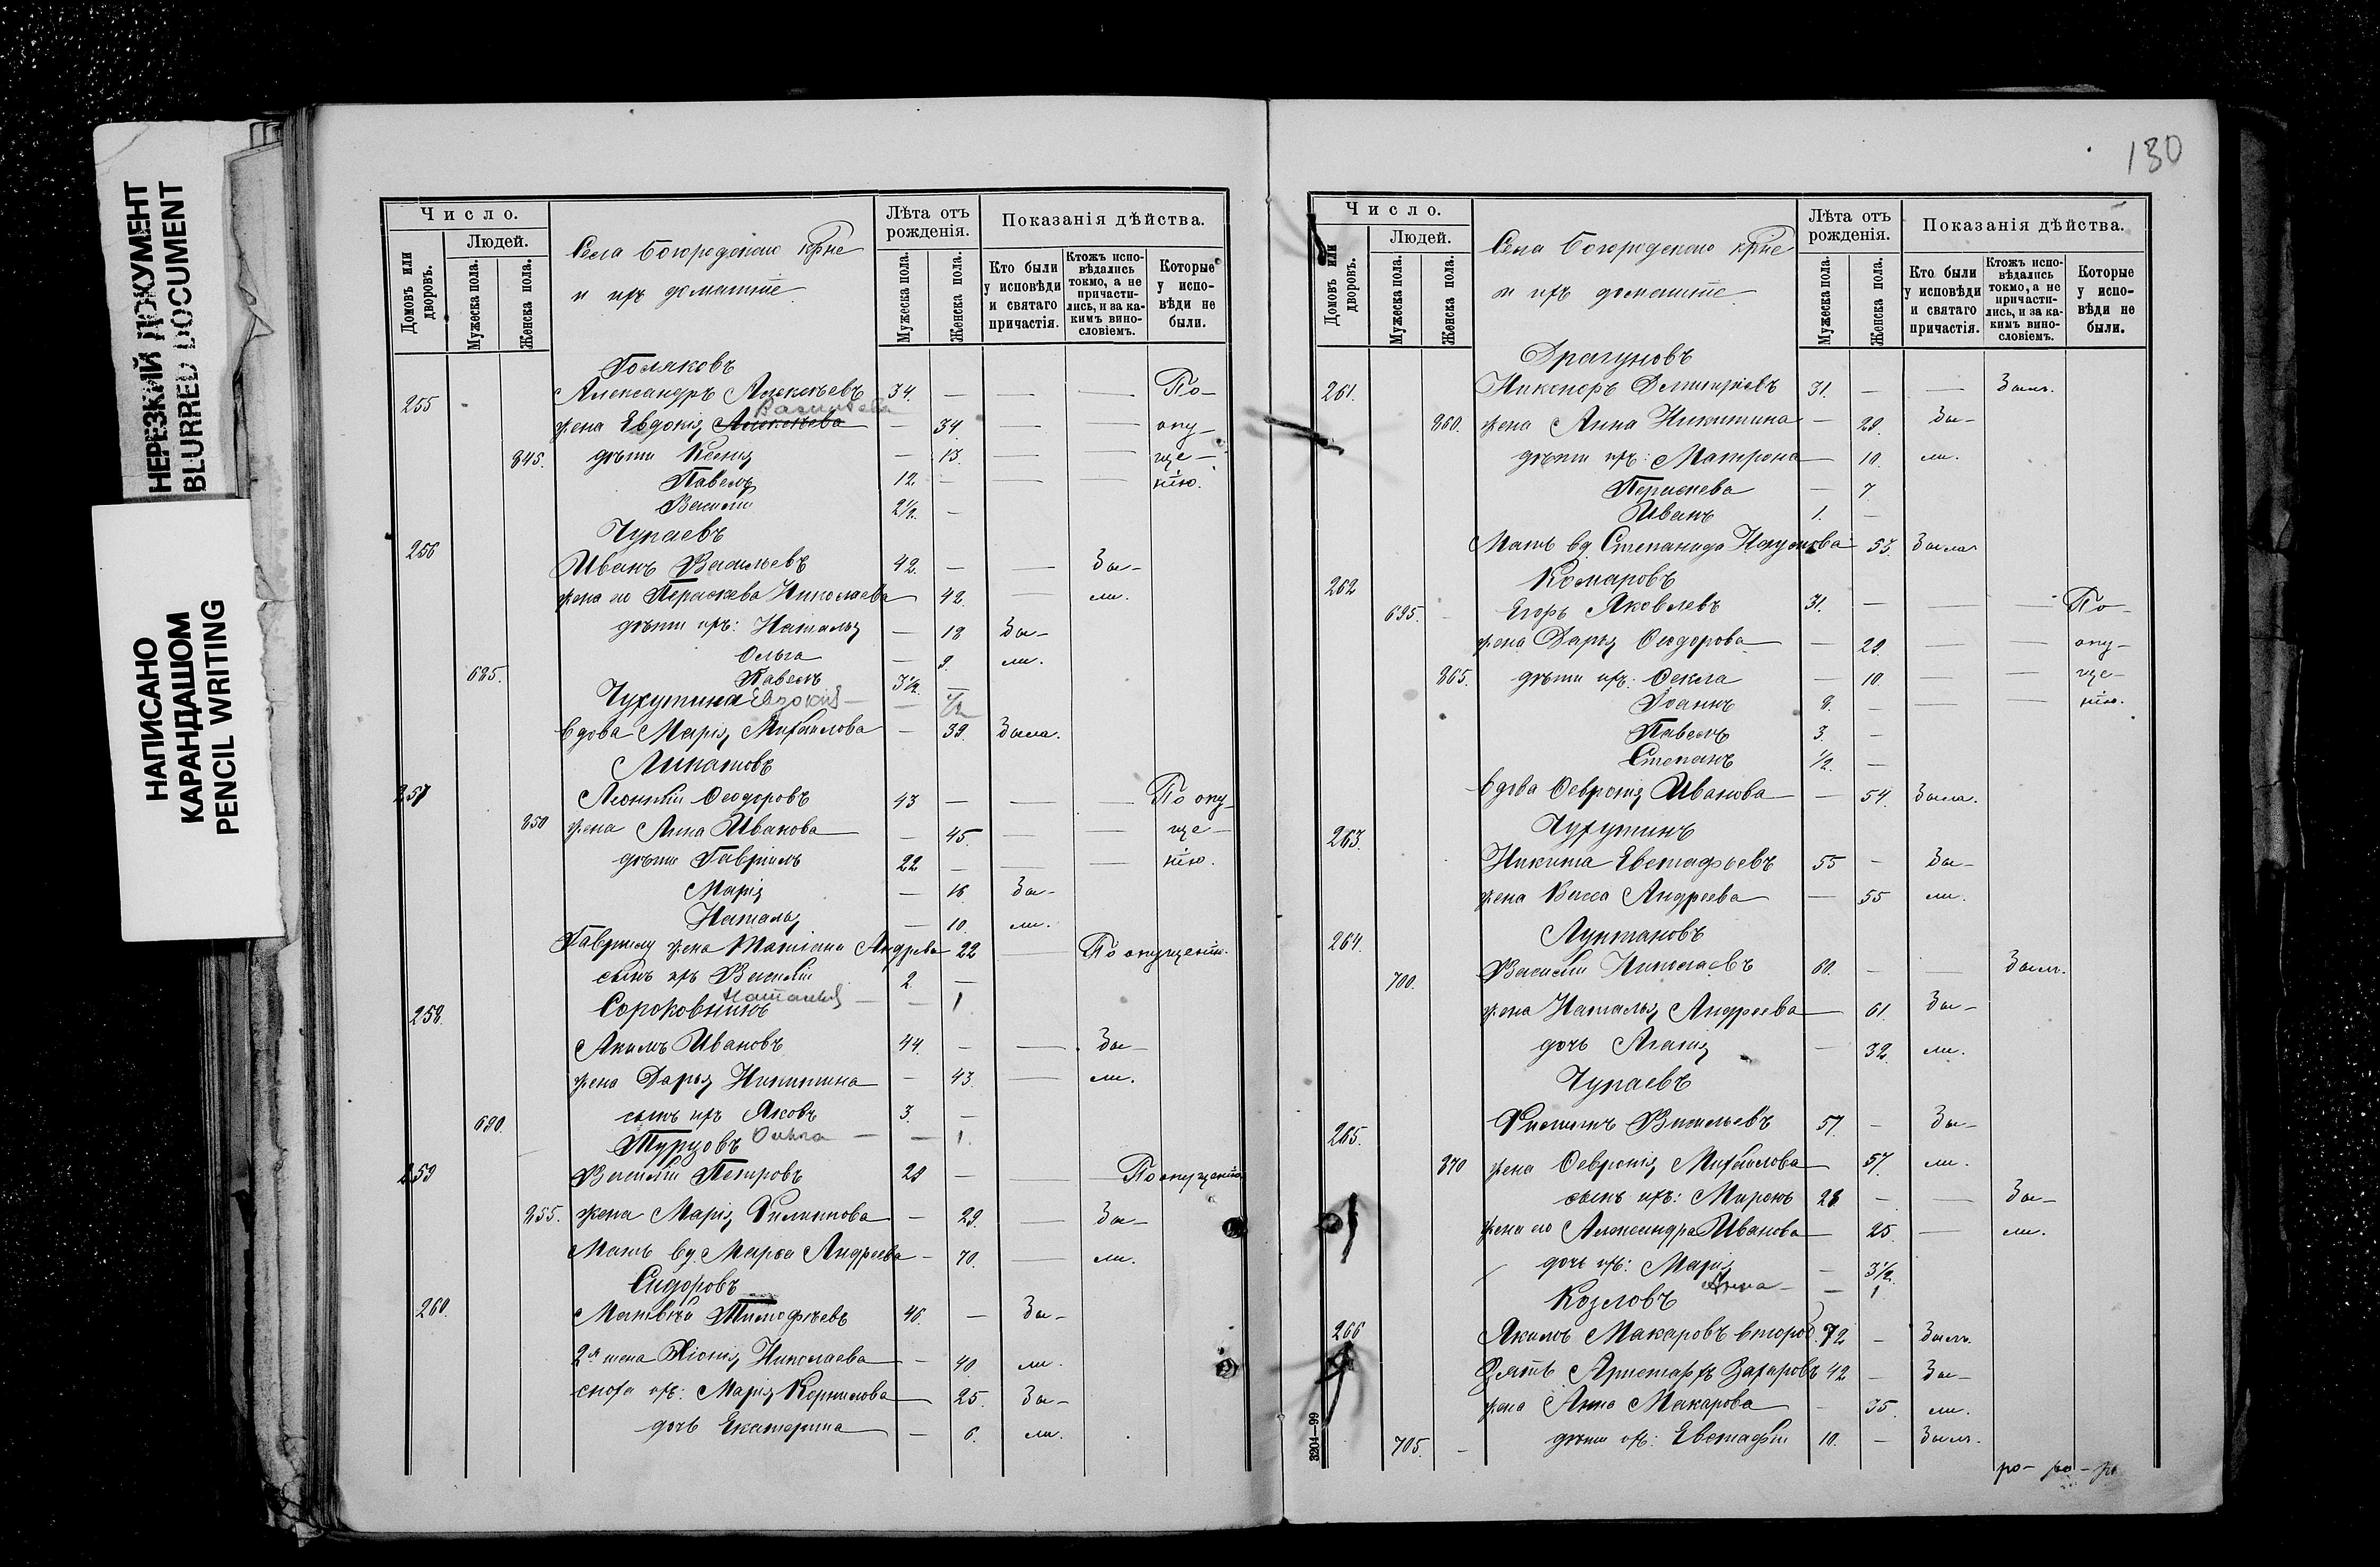 НЕРЕЗКИЙ ДОКУМЕНТ
BLURRED DOCUMENT
НАПИСАНО
КАРАНДАШОМ
PENCIL WRITING
Число.
Людей.
Домовъ или дворовъ.
Мужеска пола.
Женска пола.
Села Богородскаго крне
и ихъ домашніе
Лѣта отъ рожденія.
Мужеска пола.
Женска пола.
Показанія дѣйства.
Кто были у исповѣди и святаго причастія.
Ктожъ исповѣдались токмо, а не причастились, и за какимъ винословіемъ.
Которые у исповѣди не были.
Голяковъ
255 Александръ Алексѣевъ 34. — — — По-
Васильева
жена Евдокія Алексѣева — 34. — — опу-
845. дѣти Ксенія — 13. — — ще-
Павелъ 12. — — — нію.
Василій 2½. —
Чупаевъ
256 Иванъ Васильевъ 42. — — Бы-
жена его Параскева Николаева 42. — ли.
дѣти ихъ: Наталья — 18 Бы-
Ольга — 9. ли.
685. Павелъ 3½. —
Чухутина Евдокія — — ½
вдова Марія Михайлова — 39. Была.
Липатовъ
257 Леонтій Ѳеодоровъ 43 — — — По опу-
850 жена Анна Иванова — 45. — — ще-
дѣти Гавріилъ 22 — — — нію.
Марія — 16 Бы-
Наталья — 10. ли.
Гавріилу жена Татіана Андреева 22 — По опущенію.
сынъ ихъ Василій 2. —
Наталья — — 1
258. Сороковнинъ
Акимъ Ивановъ 44. — — Бы-
жена Дарья Никитина — 43. — ли.
690. сынъ ихъ Яковъ 3. —
Турузовъ Ольга — — 1.
259 Василій Петровъ 28 — — По опущенію
855. жена Марія Филиппова — 29. — Бы-
Мать вд. Марѳа Андреева — 70. — ли.
Сидоровъ
260. Матвѣй Тимофѣевъ 46. — Бы-
2я жена Хіонія Николаева — 40. ли.
сноха ихъ: Марія Корнилова 25. Бы-
дочь Екатерина — 6. ли.
130
Число.
Людей.
Домовъ или дворовъ.
Мужеска пола.
Женска пола.
Села Богородскаго крне
и ихъ домашніе.
Лѣта отъ рожденія.
Мужеска пола.
Женска пола.
Показанія дѣйства.
Кто были у исповѣди и святаго причастія.
Ктожъ исповѣдались токмо, а не причастились, и за какимъ винословіемъ.
Которые у исповѣди не были.
Драгуновъ
261. Никаноръ Дмитріевъ 31. — — Былъ.
860. жена Анна Никитина — 29. Бы-
дѣти ихъ: Матрона — 10. ли.
Параскева — 7
Иванъ 1. —
Мать вд. Степанида Наумова 53. Была
262 Комаровъ
695. Егоръ Яковлевъ 31. — — — По-
жена Дарья Ѳеодорова — 29. — — опу-
865. дѣти ихъ: Ѳекла — 10. — — ще-
Іоаннъ 8. — — — нію.
Павелъ 3. —
Степанъ ½. —
вдова Ѳевронія Иванова — 54. Была.
263. Чухутинъ
Никита Евстафьевъ 55 — Бы-
жена Васса Андреева — 55 ли.
264. Луптановъ
700. Василій Николаевъ 60. — — Былъ.
жена Наталья Андреева — 61. Бы-
дочь Агапія — 32. ли.
Чупаевъ
265. Филиппъ Васильевъ 57. — Бы-
870 жена Ѳевронія Михайлова 57. ли.
сынъ ихъ: Миронъ 28 — — Бы-
жена его Александра Иванова 25. — ли.
дочь ихъ: Марія — 3½.
Козловъ Анна — — 1
266 Акимъ Макаровъ второй. 72 — Былъ.
Зять Аристархъ Захаровъ 42 — Бы-
жена Анна Макарова — 35. ли.
705. дѣти ихъ: Евстафій 10. — Былъ.
3204—99